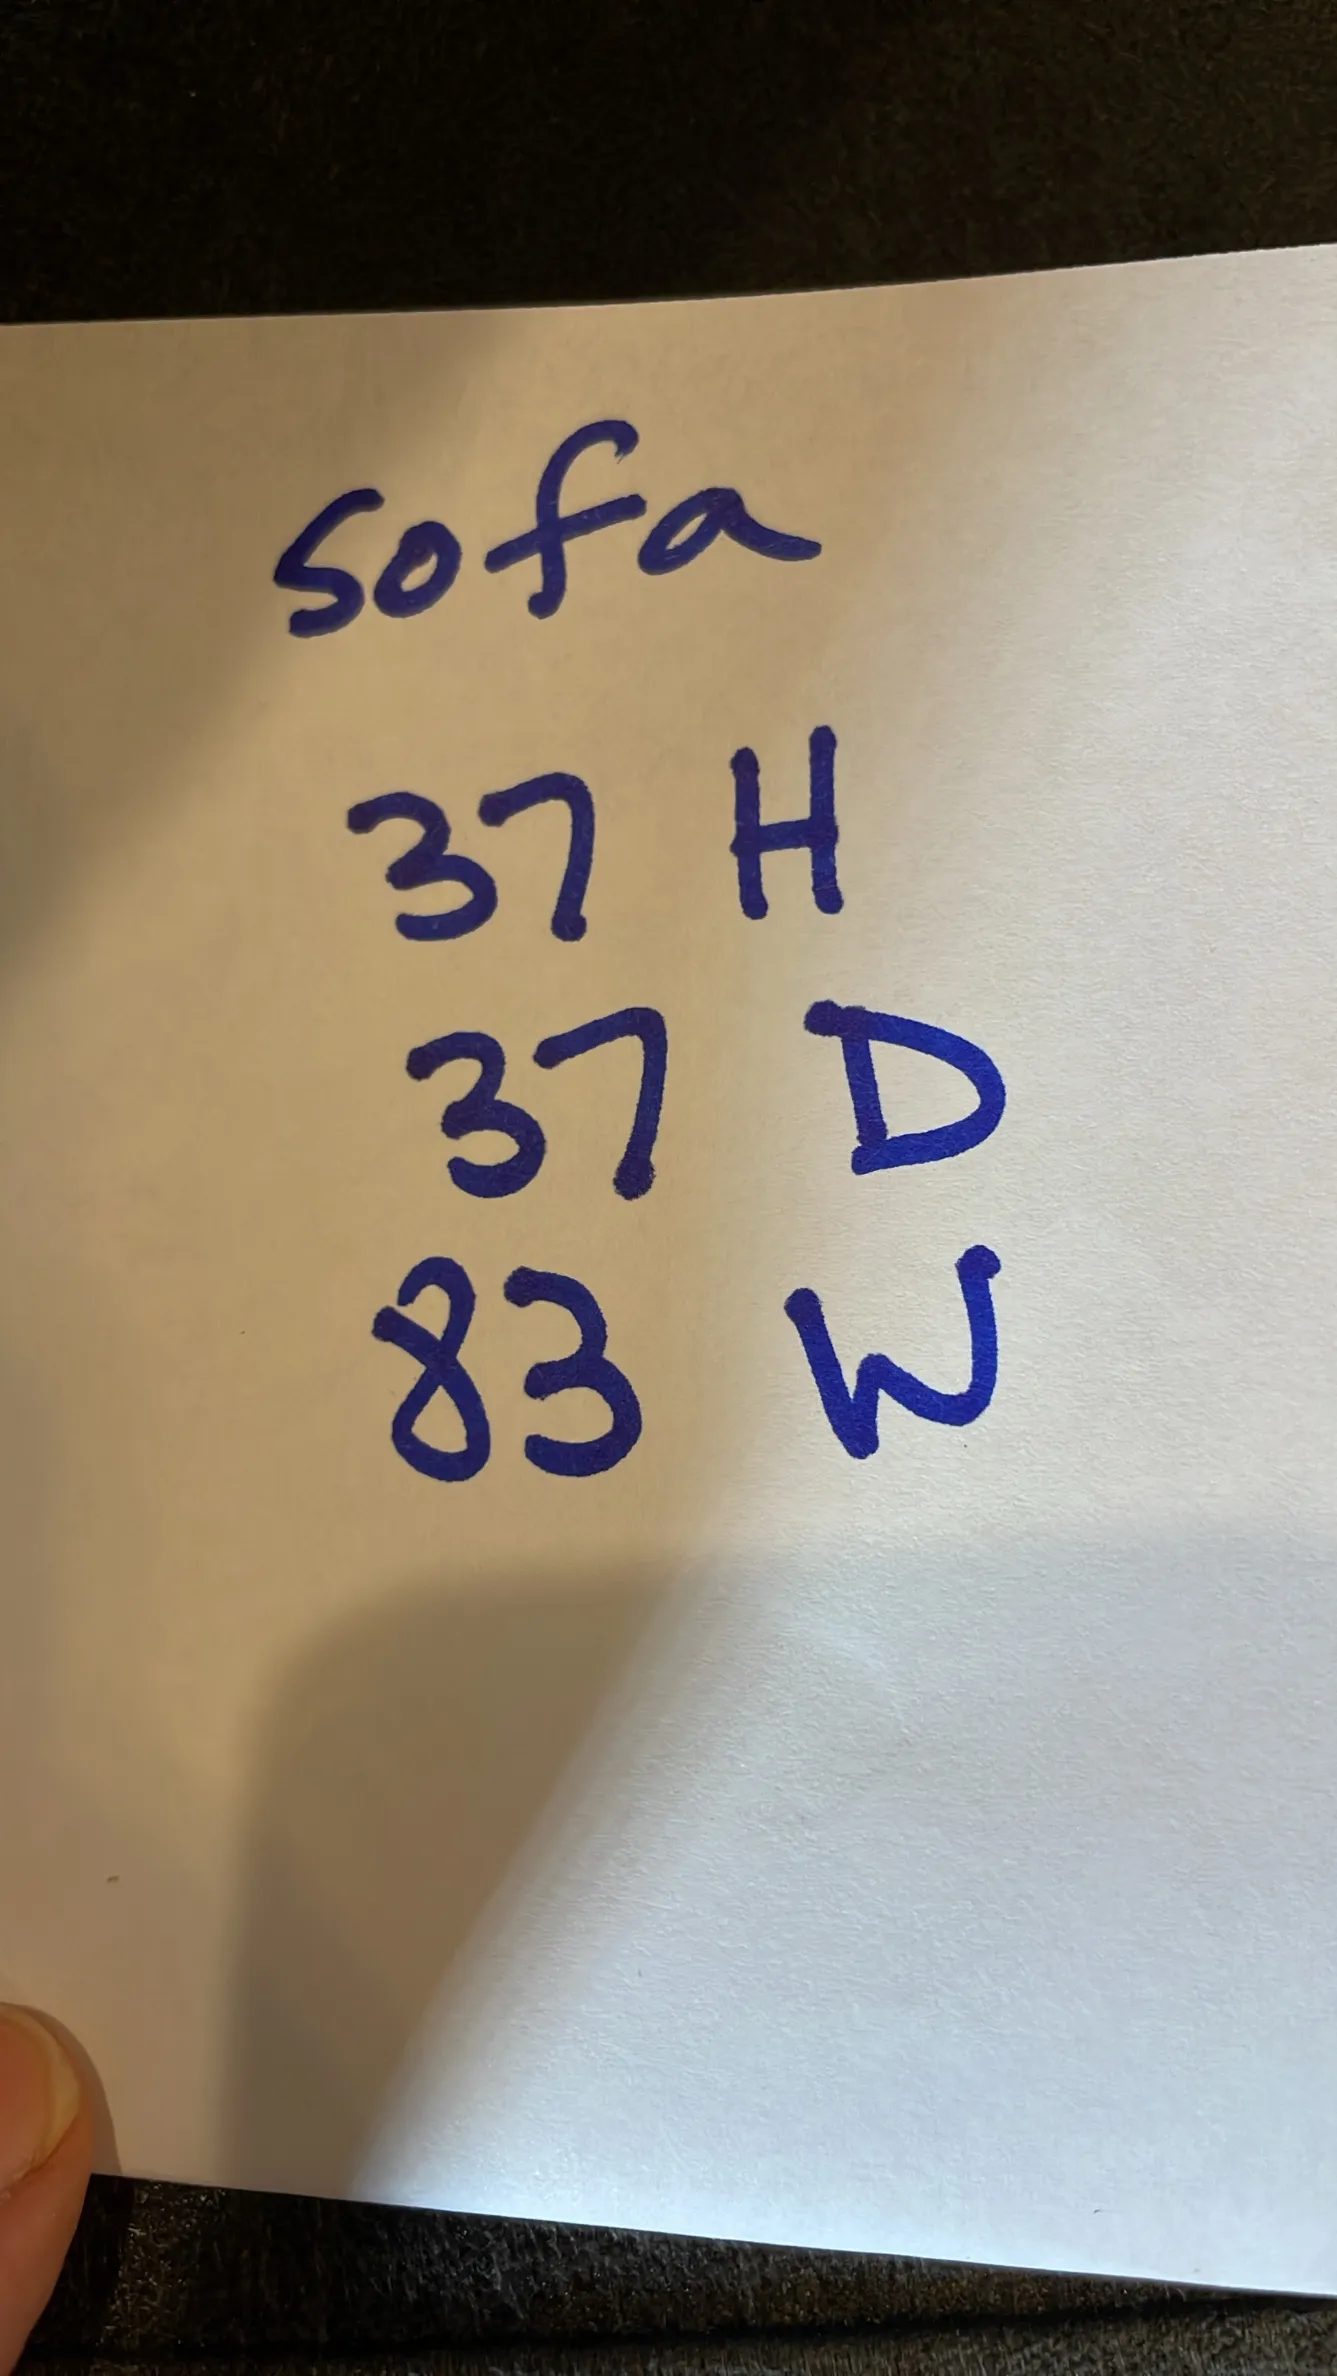 sofa
37 H
37 D
83 W